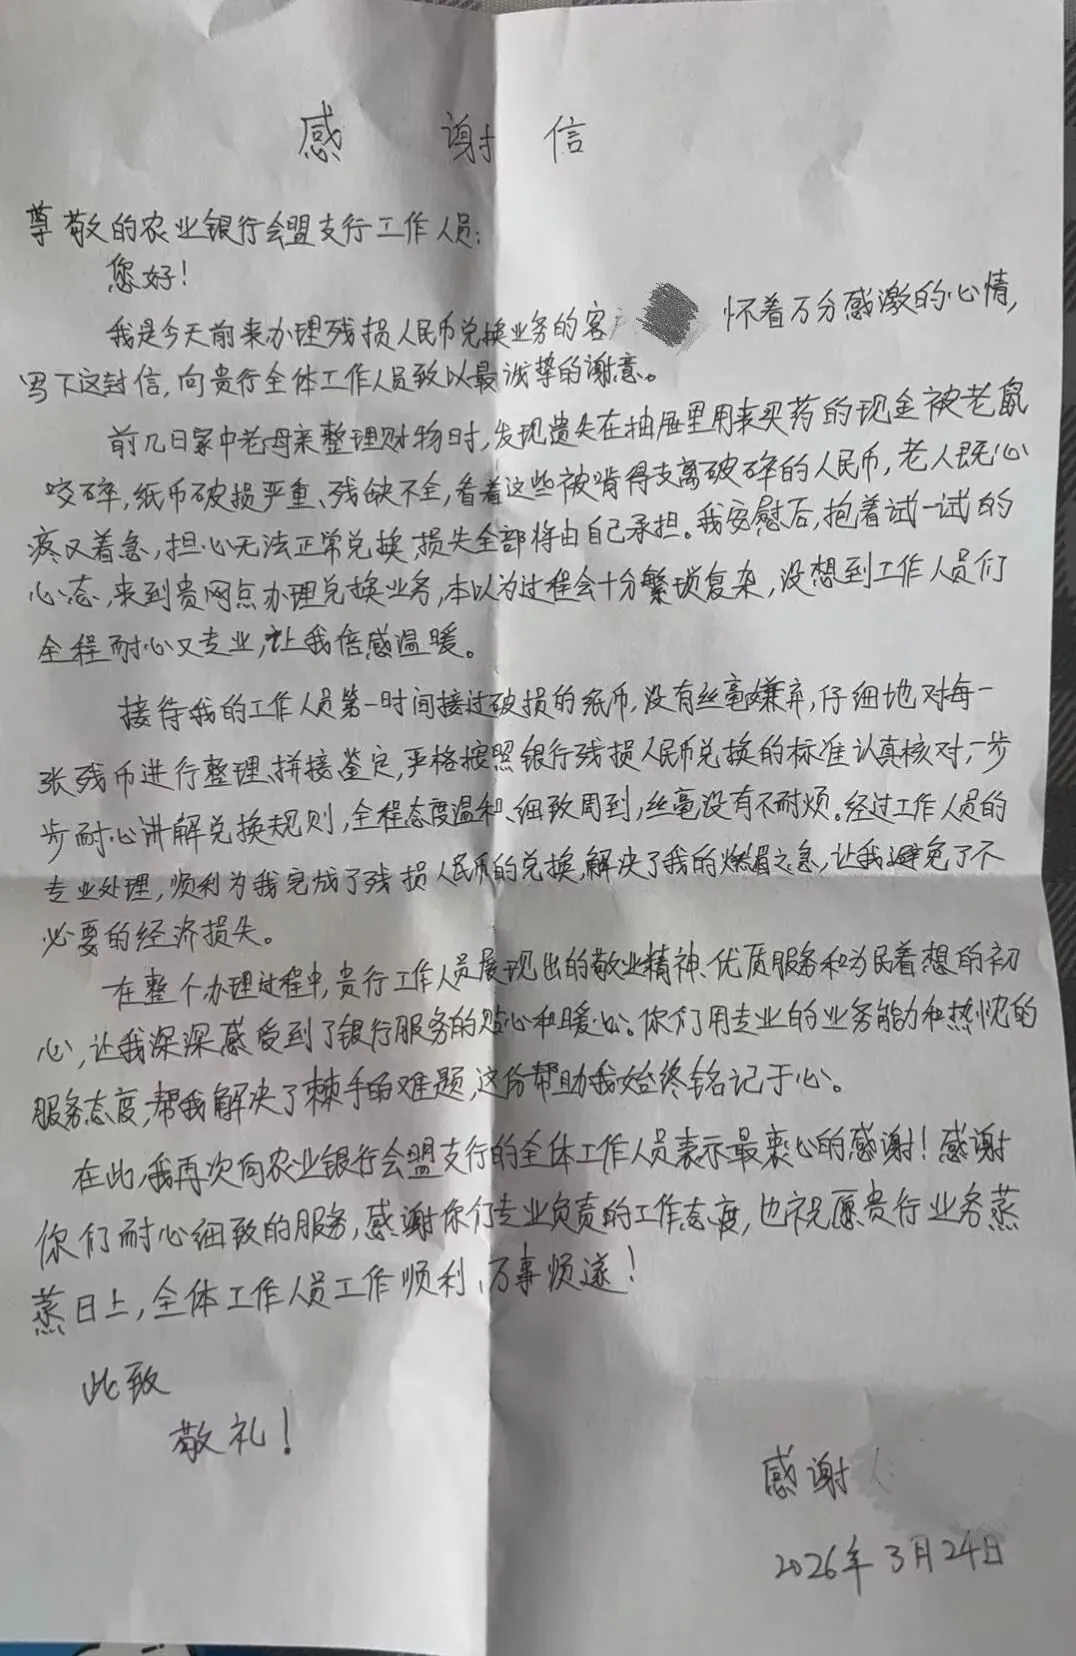 感谢信
尊敬的农业银行会盟支行工作人员:
您好!
我是今天前来办理残损人民币兑换业务的客 怀着万分感激的心情,
写下这封信,向贵行全体工作人员致以最诚挚的谢意。
前几日家中老母亲整理财物时,发现遗失在抽屉里用来买药的现金被老鼠
咬碎,纸币破损严重、残缺不全,看着这些被啃得支离破碎的人民币,老人既心
疼又着急,担心无法正常兑换,损失全部将由自己承担。我安慰后,抱着试一试的
心态,来到贵网点办理兑换业务,本以为过程会十分繁琐复杂,没想到工作人员们
全程耐心又专业,让我倍感温暖。
接待我的工作人员第一时间接过破损的纸币,没有丝毫嫌弃,仔细地对每一
张残币进行整理、拼接、鉴定,严格按照银行残损人民币兑换的标准认真核对,一步
步耐心讲解兑换规则,全程态度温和、细致周到,丝毫没有不耐烦。经过工作人员的
专业处理,顺利为我完成了残损人民币的兑换,解决了我的燃眉之急,让我避免了不
必要的经济损失。
在整个办理过程中,贵行工作人员展现出的敬业精神、优质服务和为民着想的初
心,让我深深感受到了银行服务的贴心和暖心。你们用专业的业务能力和热忱的
服务态度,帮我解决了棘手的难题,这份帮助我始终铭记于心。
在此,我再次向农业银行会盟支行的全体工作人员表示最衷心的感谢!感谢
你们耐心细致的服务,感谢你们专业负责的工作态度,也祝愿贵行业务蒸
蒸日上,全体工作人员工作顺利,万事顺遂!
此致
敬礼!
感谢
2026年3月24日